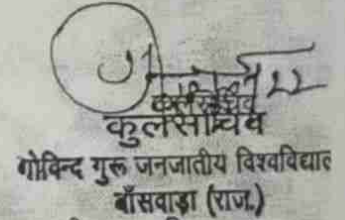 कुलसचिव
कुलसचिव
गोविन्द गुरू जनजातीय विश्वविद्याल
बाँसवाड़ा (राज.)